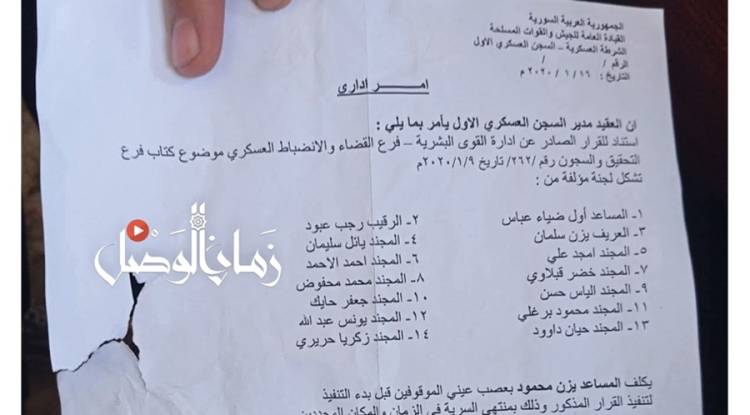 الجمهورية العربية السورية
القيادة العامة للجيش والقوات المسلحة
الشرطة العسكرية – السجن العسكري الاول
الرقم / /
التاريخ : ١٦ / ١ / ٢٠٢٠ م
امــر اداري
ان العقيد مدير السجن العسكري الاول يأمر بما يلي :
استناد للقرار الصادر عن ادارة القوى البشرية – فرع القضاء والانضباط العسكري موضوع كتاب فرع
التحقيق والسجون رقم /٢٦٢/ تاريخ ٢٠٢٠/١/٩م
تشكل لجنة مؤلفة من :
١- المساعد أول ضياء عباس
٢- الرقيب رجب عبود
٣- العريف يزن سلمان
٤- المجند يائل سليمان
٥- المجند امجد علي
٦- المجند احمد الاحمد
٧- المجند خضر قبلاوي
٨- المجند محمد محفوض
٩- المجند الياس حسن
١٠- المجند جعفر حايك
١١- المجند محمود برغلي
١٢- المجند يونس عبد الله
١٣- المجند حيان داوود
١٤- المجند زكريا حريري
زمان الوصل
يكلف المساعد يزن محمود بعصب عيني الموقوفين قبل بدء التنفيذ
لتنفيذ القرار المذكور وذلك بمنتهى السرية في الزمان والمكان المحددين